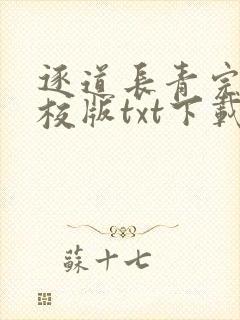 逐道長青完
校版txt下載
蘇十七